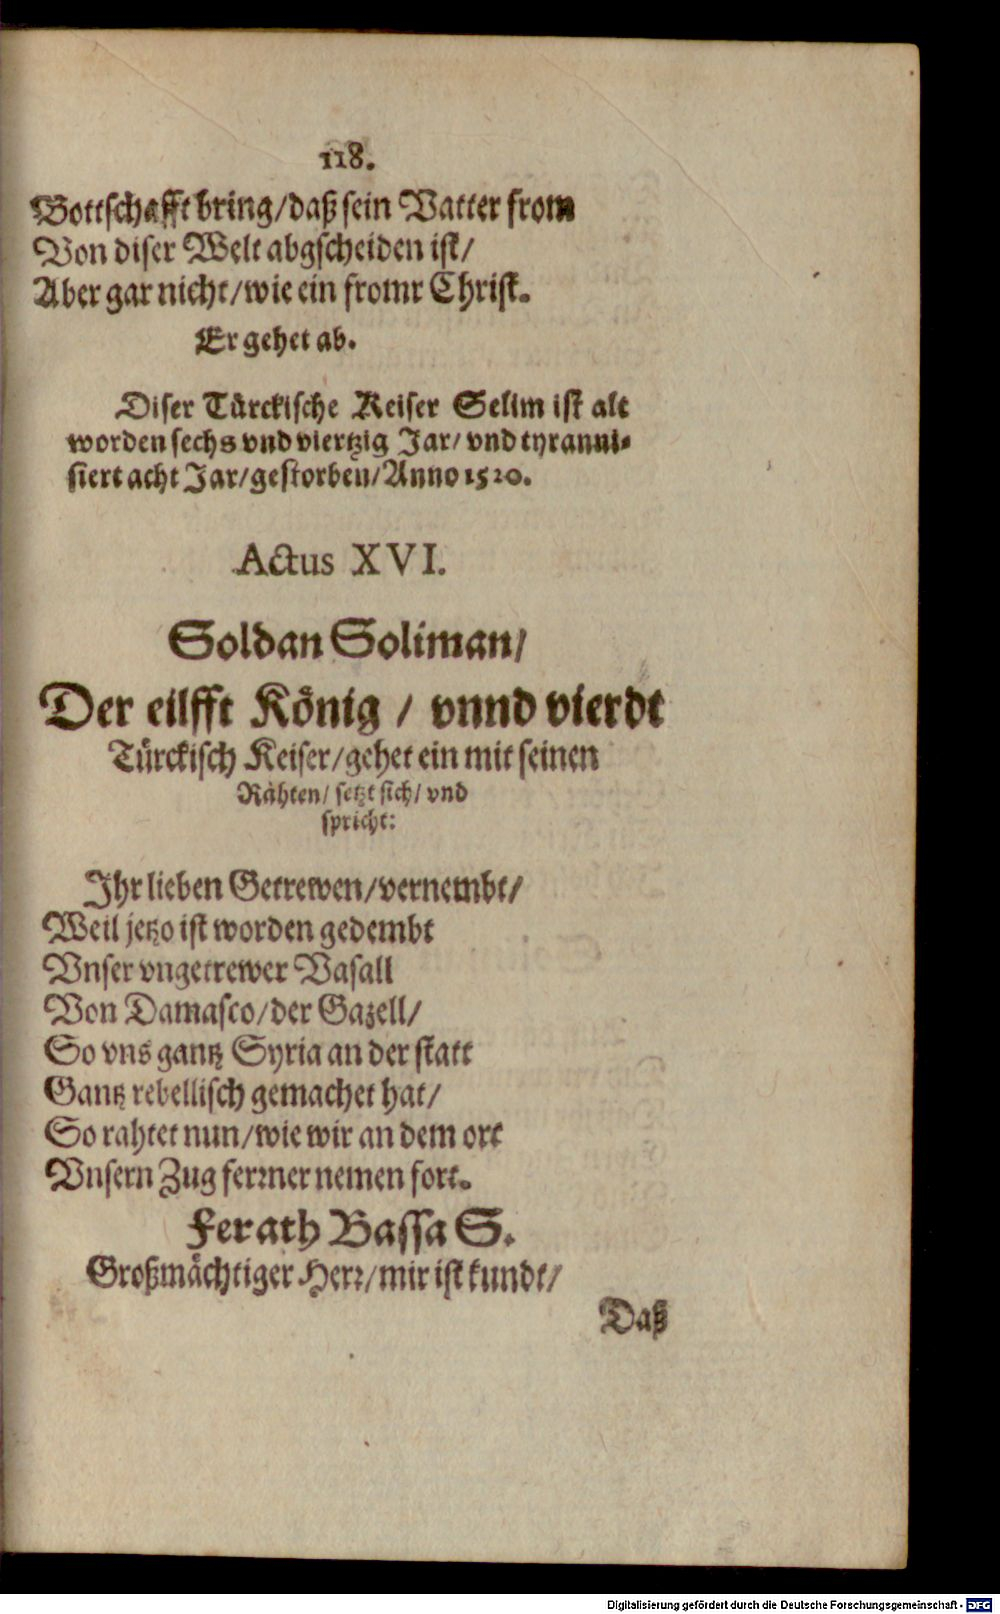 118.
Bottschafft bring/daß sein Vatter from
Von diser Welt abgscheiden ist/
Aber gar nicht/wie ein fromr Christ.
Er gehet ab.
Diser Türckische Keiser Selim ist alt
worden sechs vnd viertzig Jar/ vnd tyranni-
siert acht Jar/gestorben/Anno 1520.
Actus XVI.
Soldan Soliman/
Der eilfft König / vnnd vierdt
Türckisch Keiser/gehet ein mit seinen
Rähten/ setzt sich/ vnd
spricht:
Ihr lieben Getrewen/vernembt/
Weil jetzo ist worden gedembt
Vnser vngetrewer Vasall
Von Damasco/der Gazell/
So vns gantz Syria an der statt
Gantz rebellisch gemachet hat/
So rahtet nun/wie wir an dem ort
Vnsern Zug ferrner nemen fort.
Ferath Bassa S.
Großmächtiger Herr/mir ist kundt/
Daß
Digitalisierung gefördert durch die Deutsche Forschungsgemeinschaft - DFG